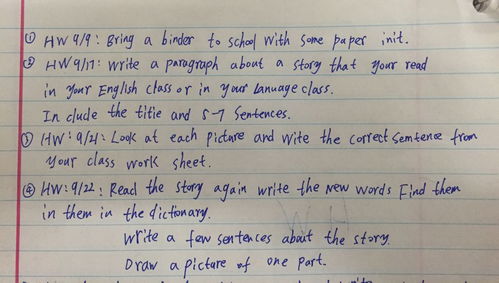 ① HW 9/9: Bring a binder to school with some paper init.
② HW 9/17: write a paragraph about a story that your read
in your English class or in your lanuage class.
In clude the title and 5-7 sentences.
③ HW: 9/21: Look at each picture and write the correct sentence from
your class work sheet.
④ HW: 9/22: Read the story again write the new words Find them
in them in the dictionary.
write a few sentences about the story.
Draw a picture of one part.